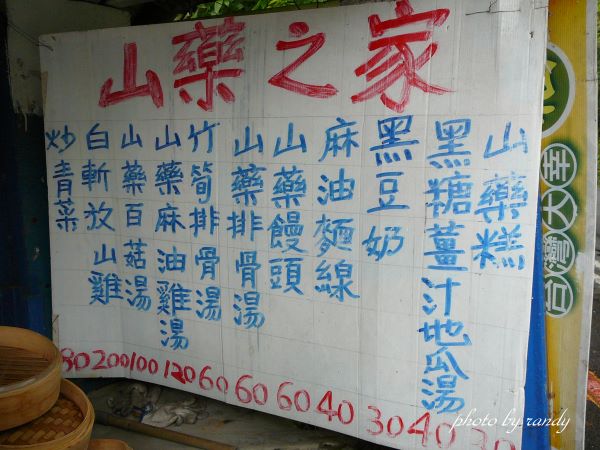 山藥之家
山藥糕 30
黑糖薑汁地瓜湯 40
黑豆奶 30
麻油麵線 40
山藥饅頭 60
山藥排骨湯 60
竹筍排骨湯 60
山藥麻油雞湯 120
山藥百菇湯 100
白斬放山雞 200
炒青菜 80
台灣大
photo by randy